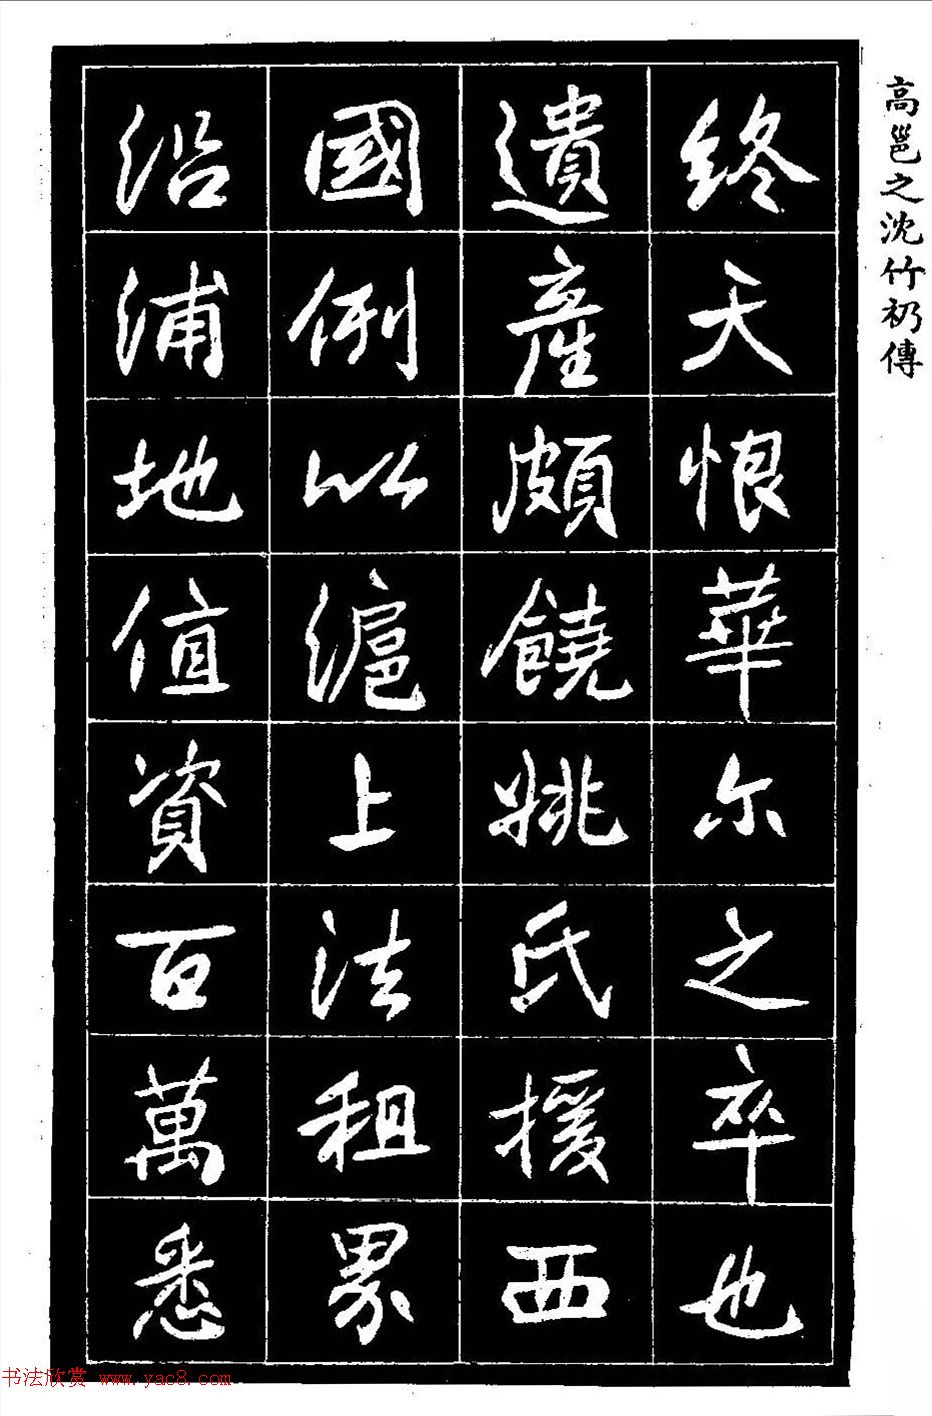 高邕之沈竹礽傳
終天恨華尔之卒也
遺產頗饒姚氏援西
國例以滬上法租界
沿浦地值資百萬悉
书法欣赏 www.yac8.com